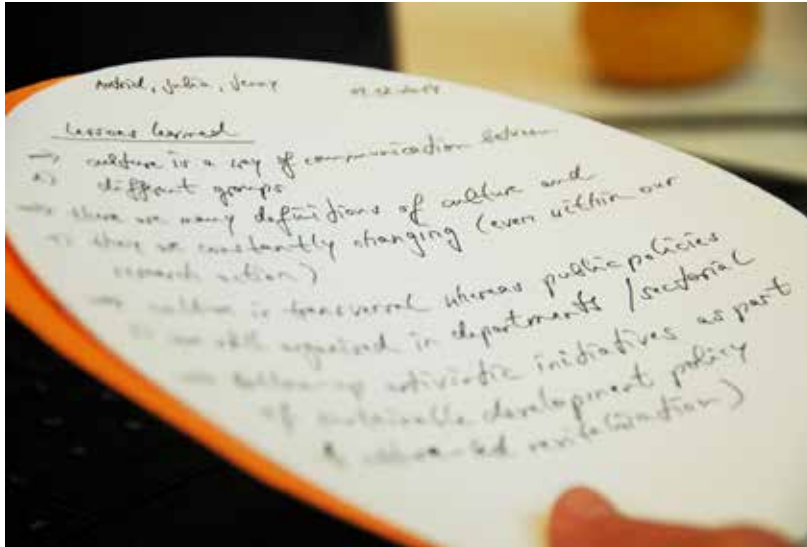 Astrid, Julia, Jenny
Lessons learned
→ culture is a way of communication between
different groups
→ there are many definitions of culture and
there are constantly changing (even within our
research action)
→ culture is transversal whereas public policies
are still organised in departments / sectorial
→ bottom-up artivistic initiatives as part
of sustainable development policy
revitalization)